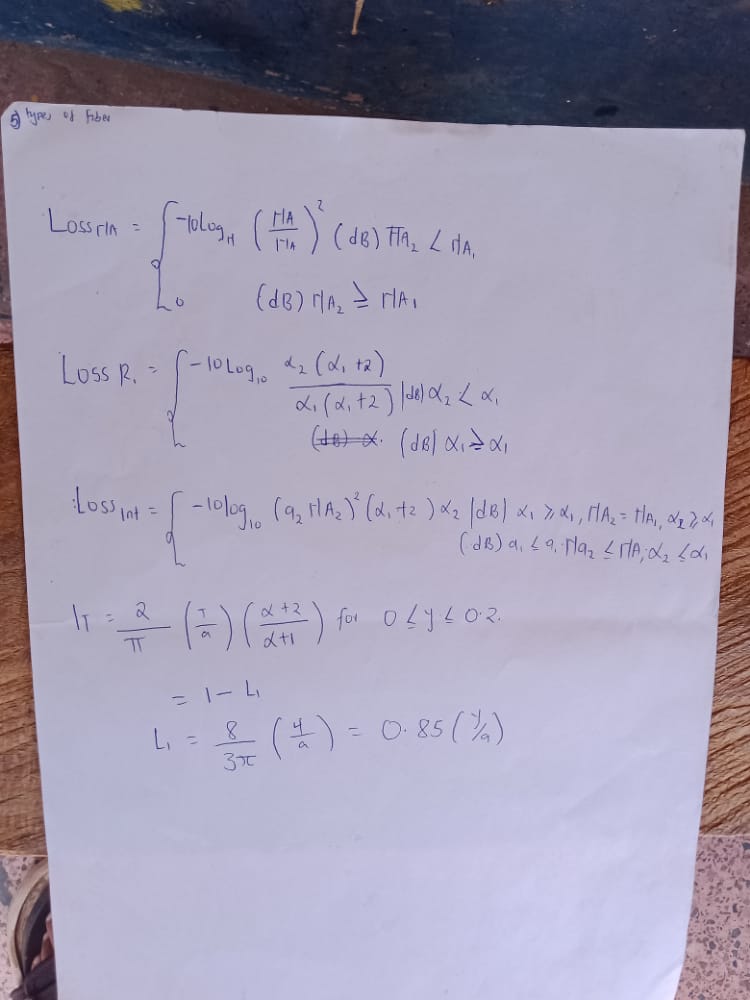 5) types of fiber
Loss rIA = { -10 Log H (rIA / rIA)² (dB) rIA₂ < rIA₁
0 (dB) rIA₂ ≥ rIA₁
Loss R₁ = { -10 Log₁₀ α₂ (α₁ +2) / α₁ (α₁ +2) |dB| α₂ < α₁
(dB) α₁ ≥ α₁
Loss Int = { -10 log₁₀ (a₂ rIA₂)² (α₁ +2) α₂ |dB| α₁ ≥ α₁, rIA₂ = rIA₁, α₂ ≥ α₁
(dB) a₁ ≤ a₁ rIa₂ ≤ rIA₁ α₂ ≤ α₁
lT = 2/π (T/a) (α +2 / α+1) for 0 ≤ y ≤ 0.2.
= 1 - L₁
L₁ = 8/3π (4/a) = 0.85 (y/a)